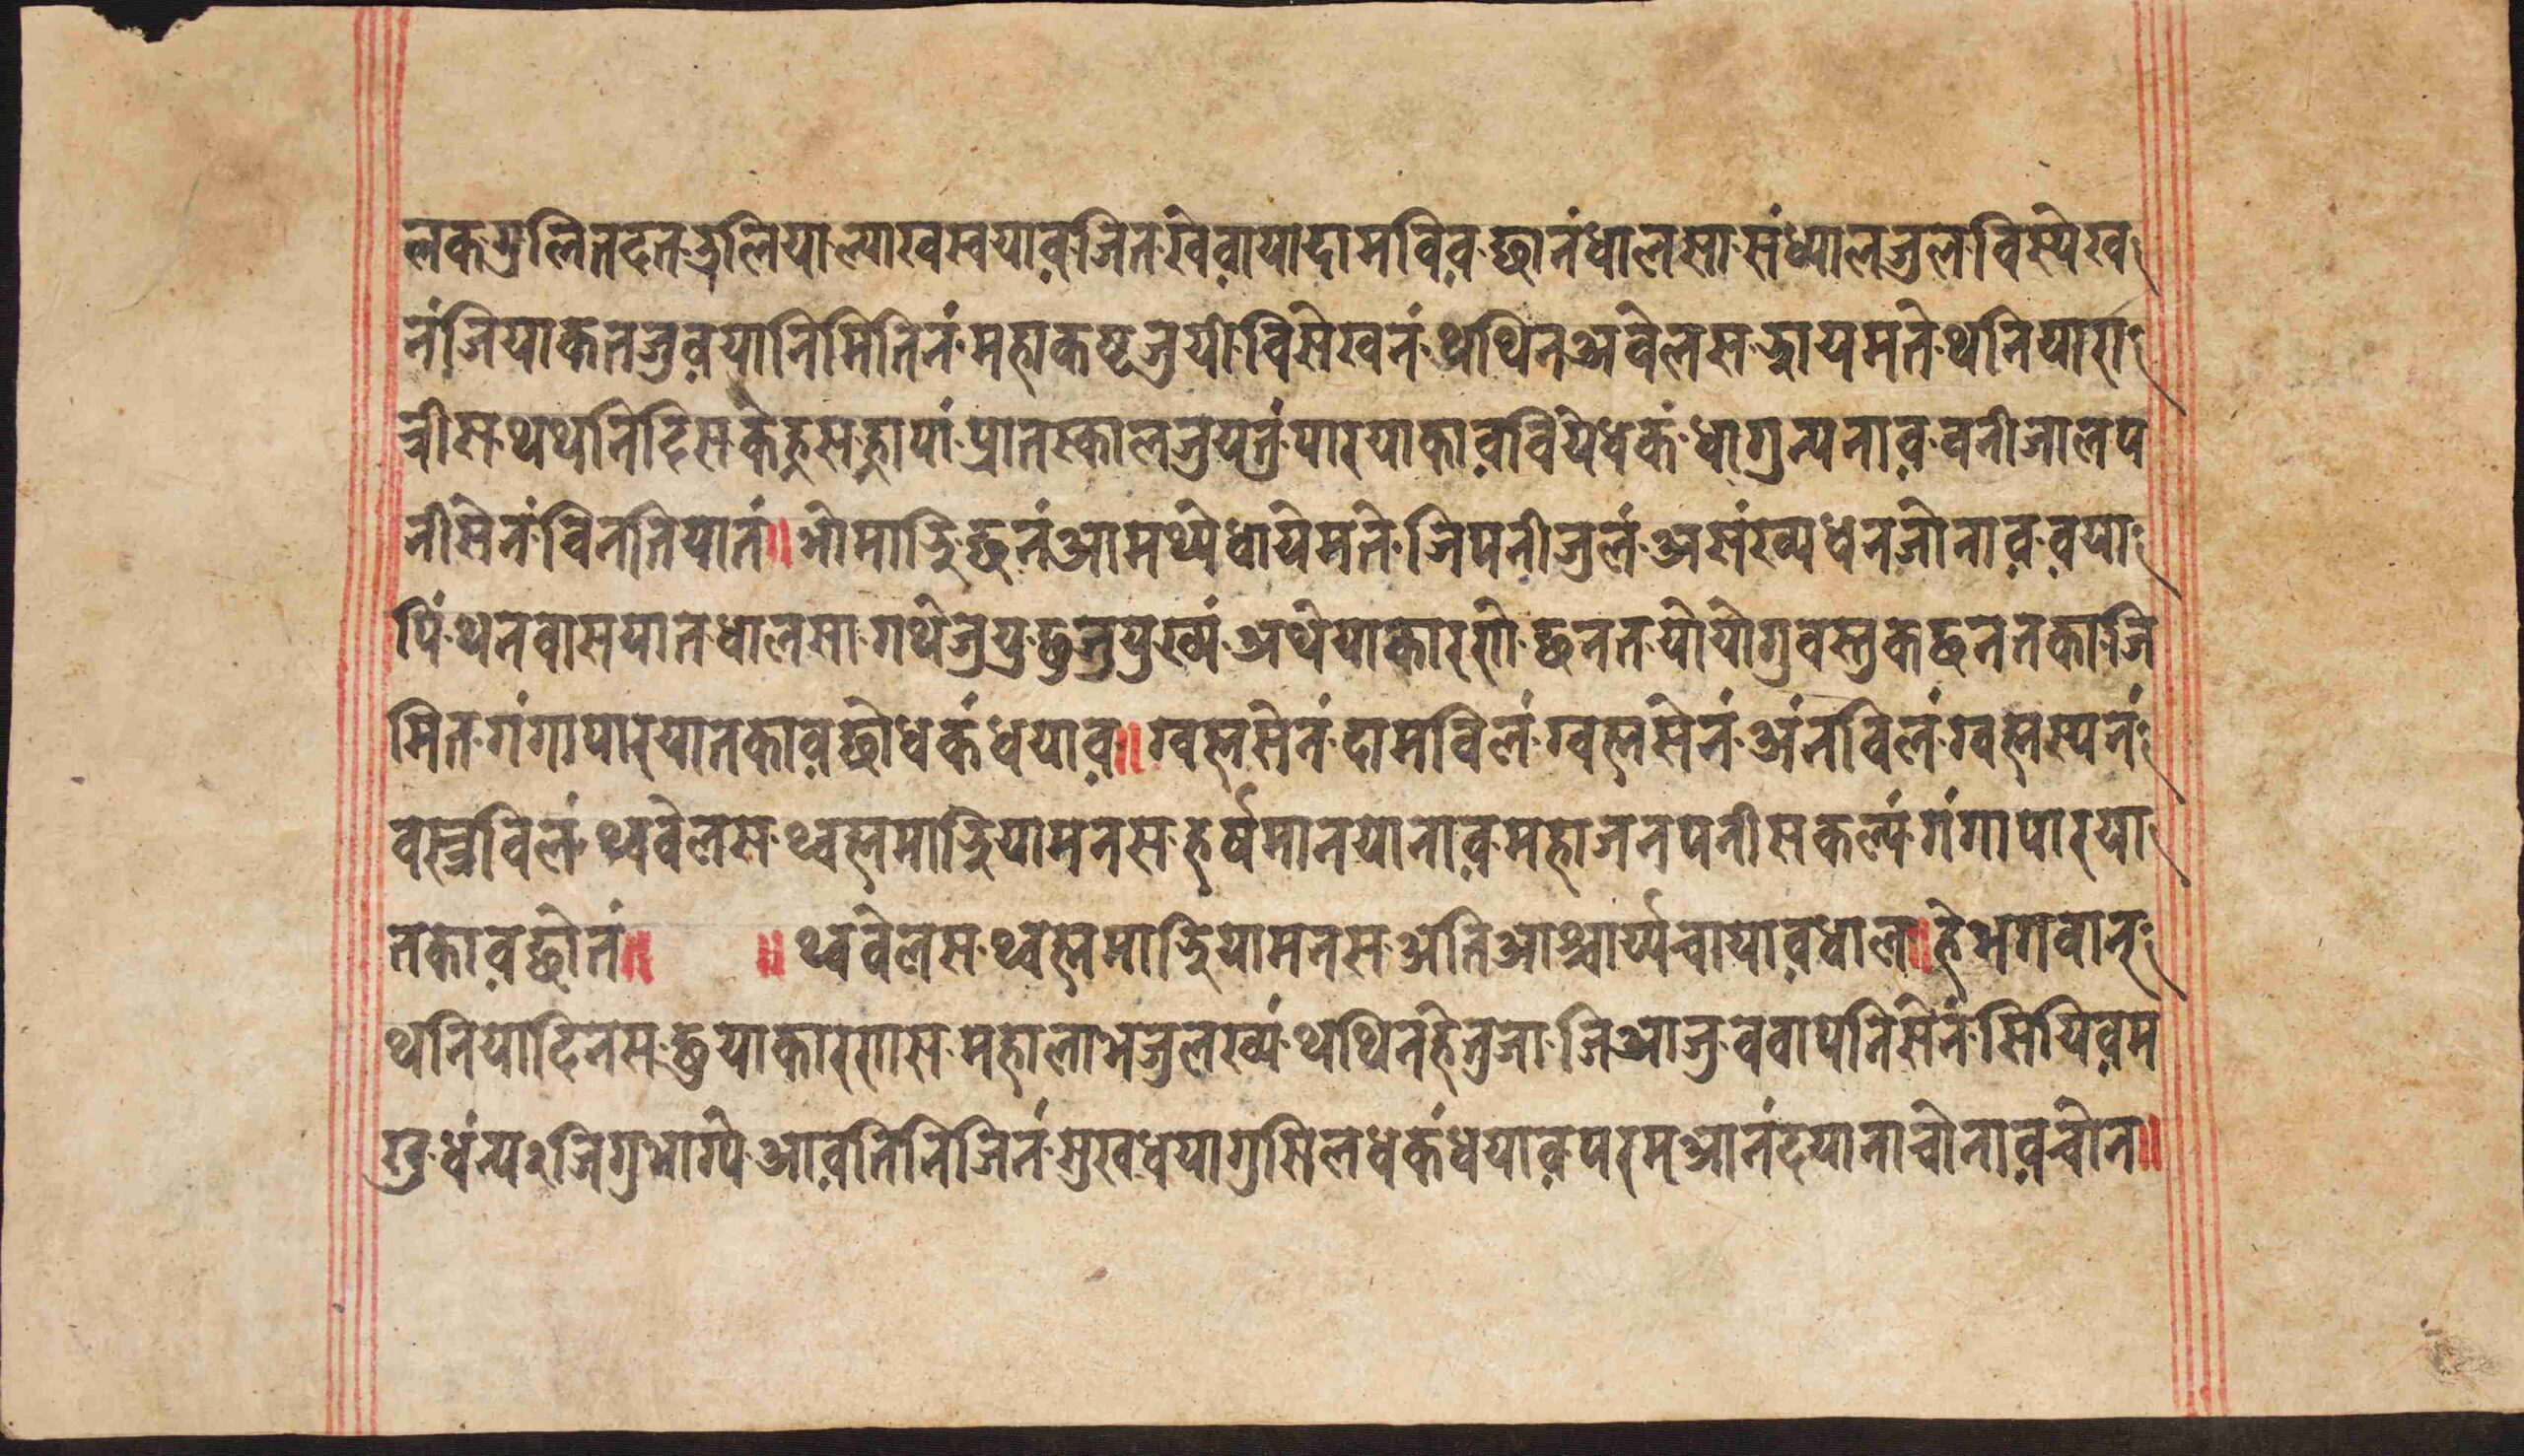 लक गुलि नदन उलिया ल्याख स्वयाव जित खेवायादाम विव छानंधालसा संध्याल जुल विस्येख
नं जियाकनजुवयानिमितिनं महाकष्टजुयी विसेखनं थथिनअवेलस ङायमते थनियारा
त्रीस थथनिदिसकेहुसङ्गापां प्रातस्काल जुयनुं पारयाकाव वियेधकं धागुन्यनाव वनीजालप
नीसेनं विनतियातं॥ भोमाझि छनंआमथ्ये धायमते जिपनीजुलं असंख्य धन जोनाव वया
पिं थनवासयात धालसा गथेजुयु छुजुयुख्यं अथेयाकारणे छनत योयोगु वस्तुक छनत का जि
मित गंगापारयातकाव छोधकं धयाव॥ ग्वह्मसेनं दाम विलं ग्वह्मसेनं अंन विलं ग्वह्मस्यनं
वस्त्र विलं थ्ववेलस थ्वह्ममाझियामनस हर्षमानयानाव महाजनपनी सकल्यं गंगापारया
तकाव छोतं॥ ॥ थ्ववेलस थ्वह्ममाझियामनस अतिआश्चार्य्य चायाव धाल॥ हेभगवान्
थनियादिनस छुयाकारणस महालाभ जुलख्यं थथिनहेतुजा जिआजु ववापनिसेनं सियिवम
खु धंन्य२ जिगुभाग्ये आवतिनि जिनं सुखधयागु सिल धकंधयाव परमआनंदयाना चोनाव चोन॥